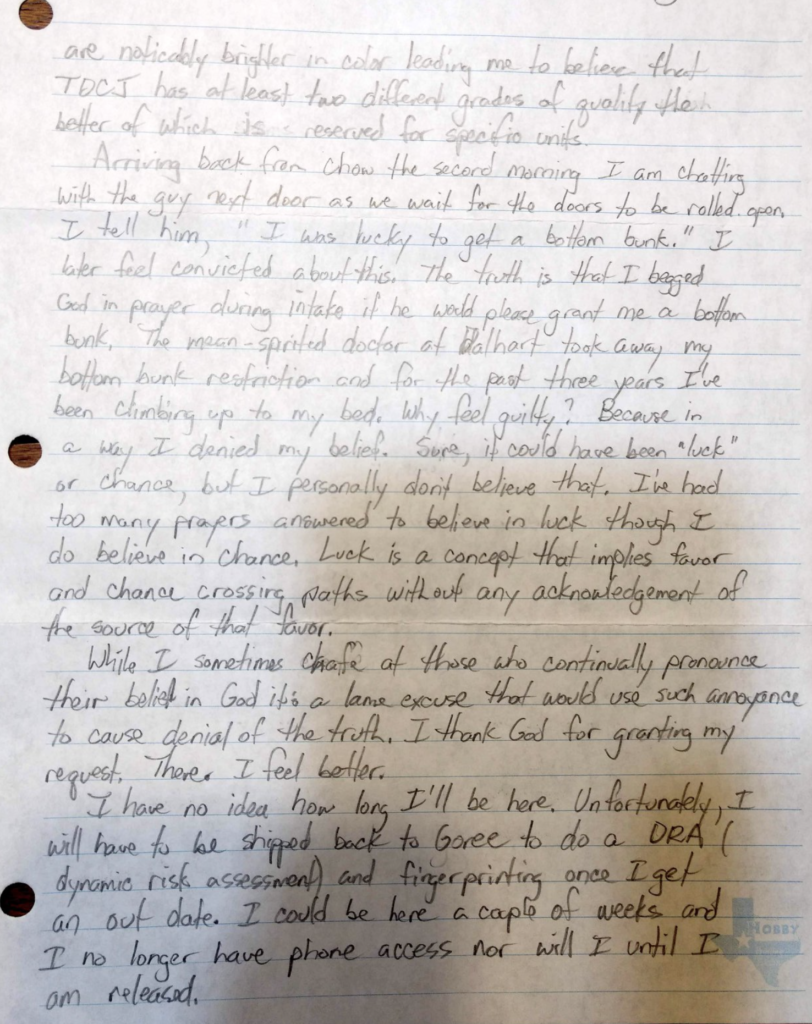 are noticably brighter in color leading me to believe that
TDCJ has at least two different grades of quality the
better of which is reserved for specific units.
Arriving back from chow the second morning I am chatting
with the guy next door as we wait for the doors to be rolled open.
I tell him, "I was lucky to get a bottom bunk." I
later feel convicted about this. The truth is that I begged
God in prayer during intake if he would please grant me a bottom
bunk. The mean-spirited doctor at Dalhart took away my
bottom bunk restriction and for the past three years I've
been climbing up to my bed. Why feel guilty? Because in
a way I denied my belief. Sure, it could have been "luck"
or chance, but I personally don't believe that. I've had
too many prayers answered to believe in luck though I
do believe in chance. Luck is a concept that implies favor
and chance crossing paths without any acknowledgement of
the source of that favor.
While I sometimes chafe at those who continually pronounce
their belief in God it's a lame excuse that would use such annoyance
to cause denial of the truth. I thank God for granting my
request. There. I feel better.
I have no idea how long I'll be here. Unfortunately, I
will have to be shipped back to Goree to do a DRA (
dynamic risk assessment) and fingerprinting once I get
an out date. I could be here a couple of weeks and
I no longer have phone access nor will I until I
am released.
HOBBY